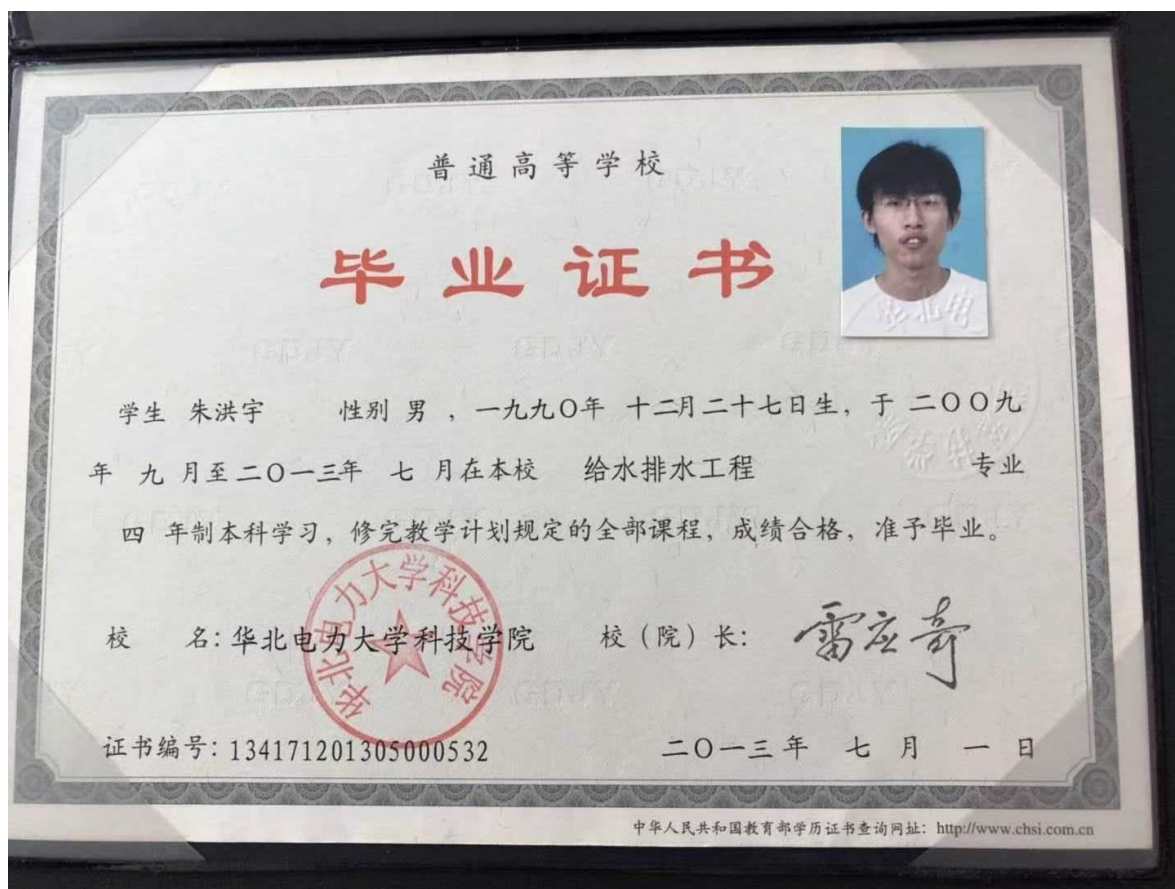 普通高等学校
毕业证书
学生 朱洪宇 性别 男 ,一九九〇年 十二月二十七日生,于 二〇〇九
年 九 月至二〇一三年 七 月在本校 给水排水工程 专业
四 年制本科学习,修完教学计划规定的全部课程,成绩合格,准予毕业。
华北电力大学科技学院
校 名:华北电力大学科技学院 校(院)长: 雷应奇
证书编号:134171201305000532 二〇一三年 七 月 一 日
中华人民共和国教育部学历证书查询网址:http://www.chsi.com.cn